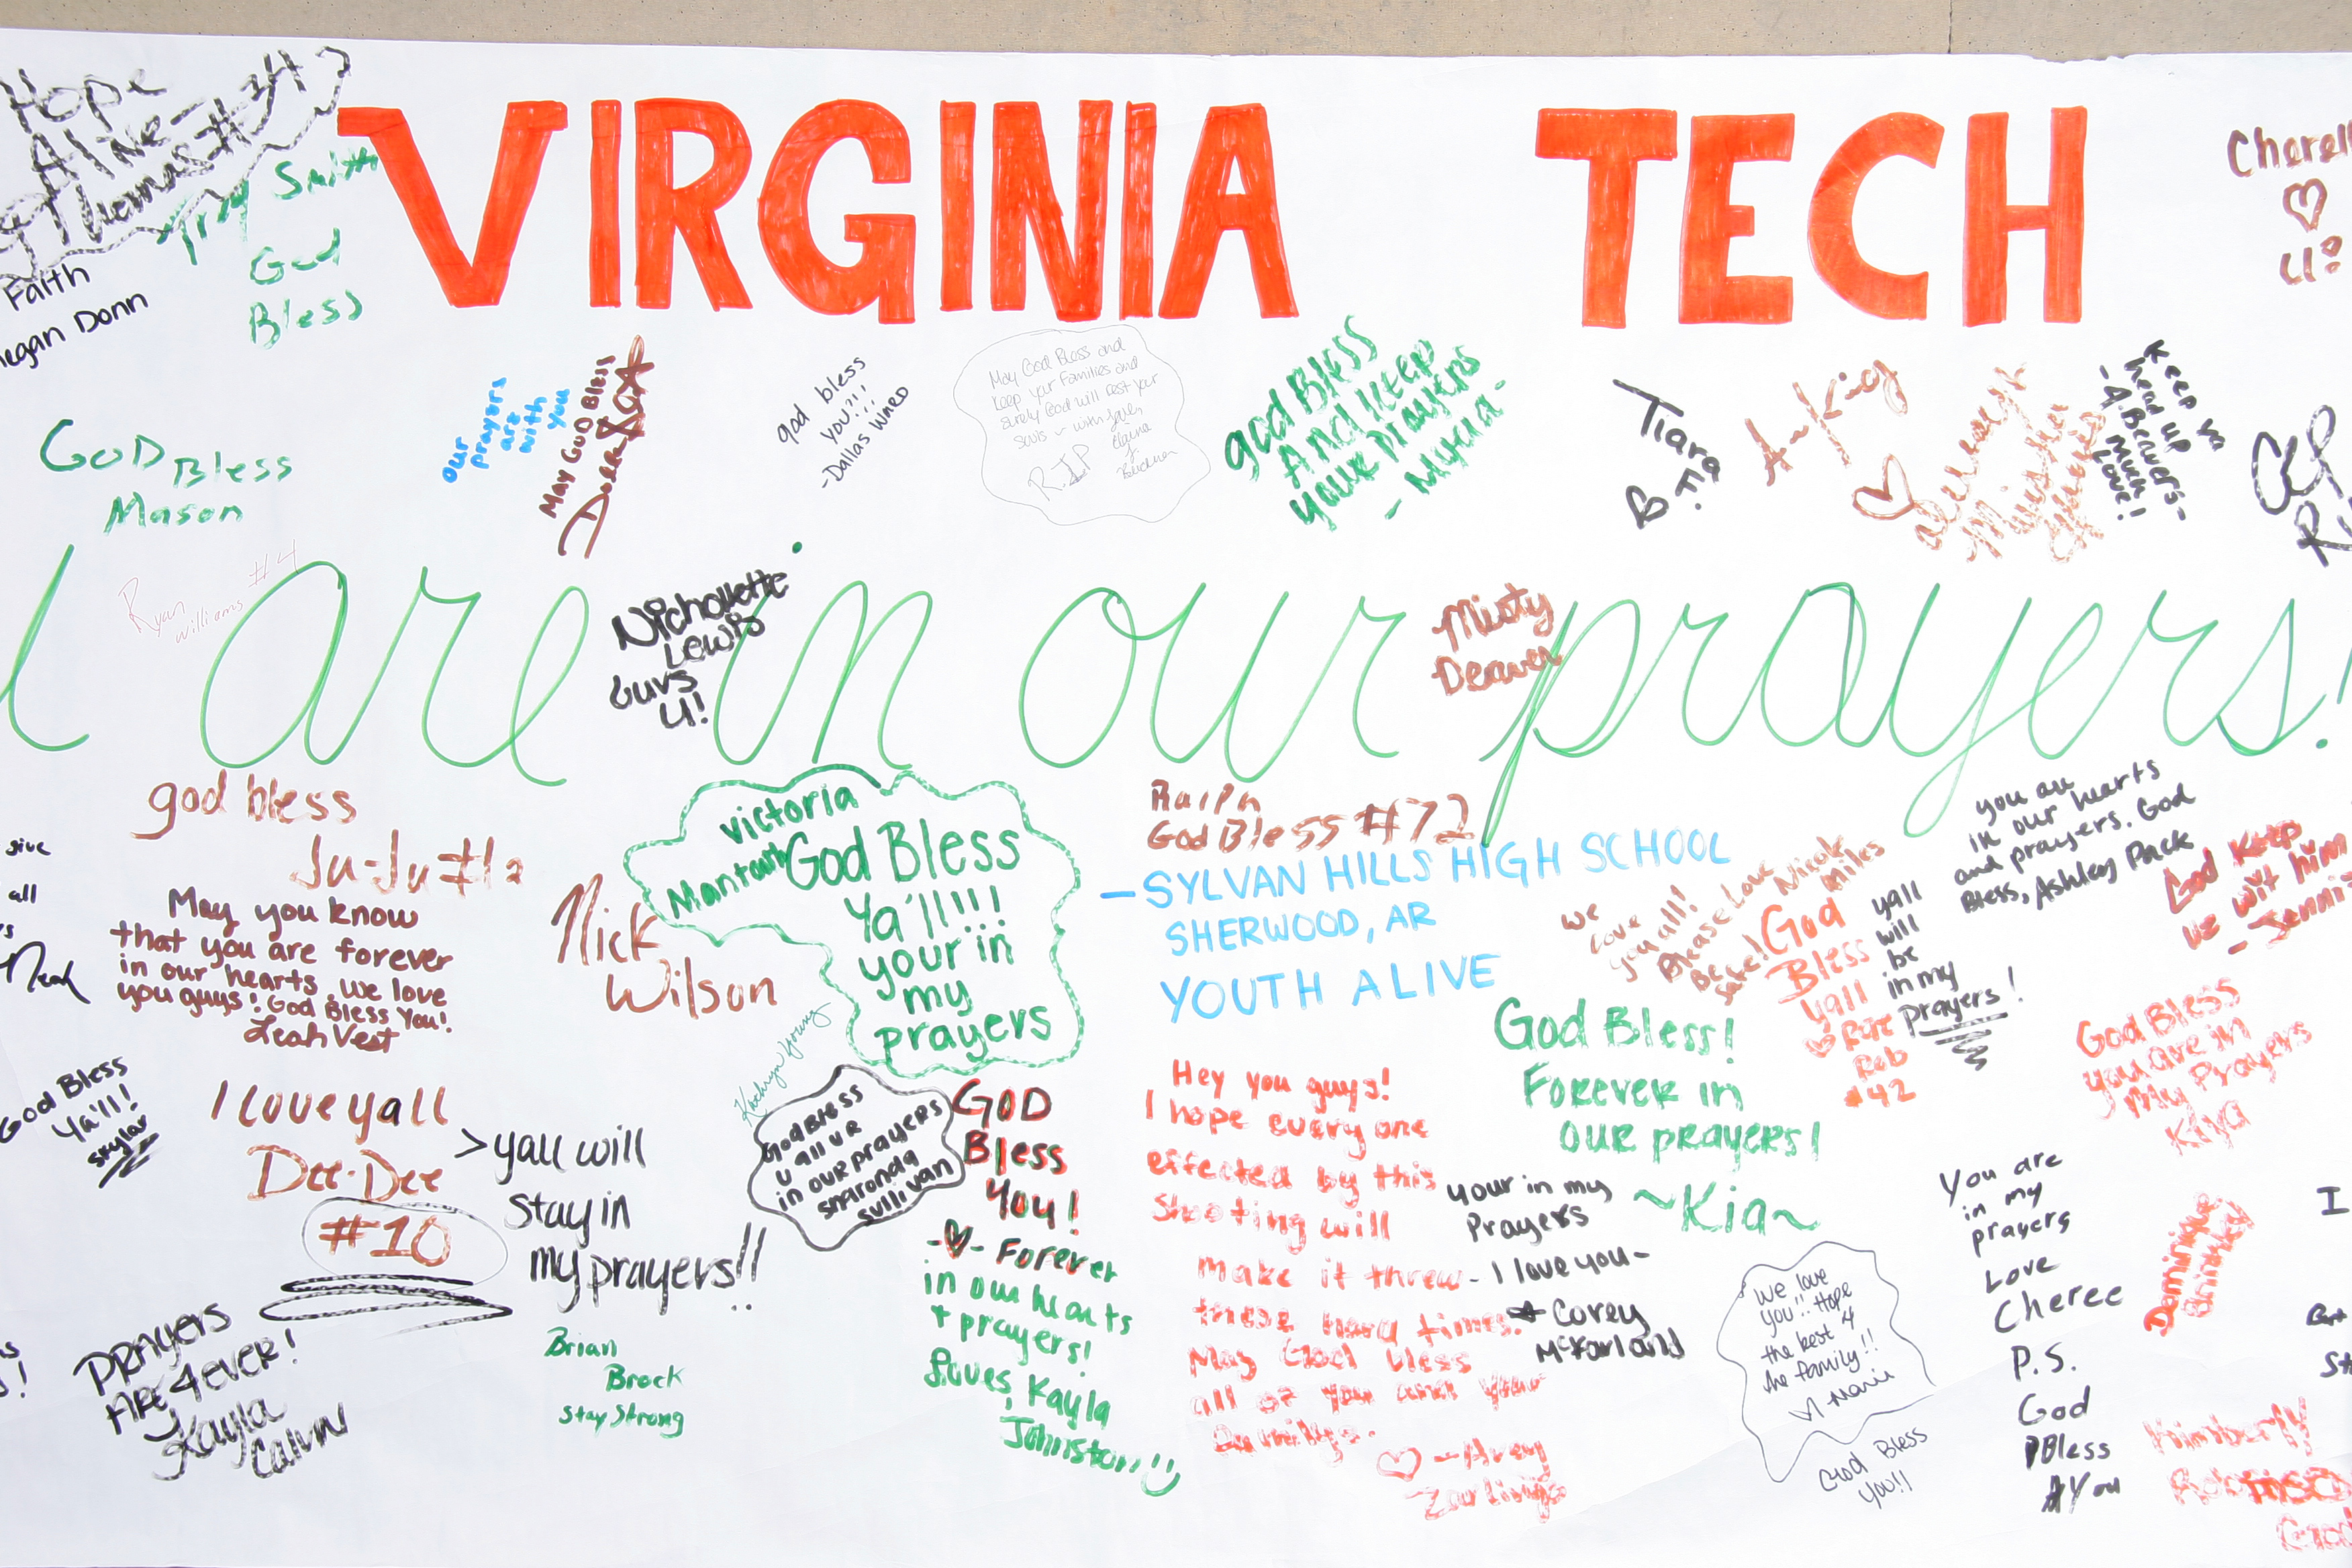 VIRGINIA TECH
Hope
Alive
Thomas #34
Trey Smith
God
Bless
Faith
egan Donn
Cherell
GOD Bless
Mason
our
prayers
are
with
you
May GOD Bless
god bless
you!!!
-Dallas
May God Bless and
Keep your Families and
Surely God will rest your
Souls ~ with love,
Elaina
J.
R.I.P
god BLESS
And KEEP
your prayers
- Myeria -
Tiara
F.
A-King
Keep ya
head up
-A Beavers-
Much
Love!!
Ryan
Williams #4
are in our prayers!
Nichollette
Lewis
Luvs
U!
Misty
Deaver
god bless
Ju-Ju #12
give
all
May you know
that you are forever
in our hearts. we love
you guys! God Bless You!
Leah Vest
Nick
Wilson
Victoria
God Bless
Ya'll!!!
your in
my
prayers
Kathryn Young
Ralph
God Bless #72
- SYLVAN HILLS HIGH SCHOOL
SHERWOOD, AR
YOUTH ALIVE
we
love
you all!
Please Love
Be
safe!
Nicole
Miles
God
Bless
yall
Rob
#42
yall
will
be
in my
prayers!
you are
in our hearts
and prayers. God
Bless, Ashley Pack
God Keep
us wit him
- Jenni
God Bless
you are in
My Prayers
Kiya
God Bless
Ya'll!
Skylar
I love yall
Dee-Dee
#10
>yall will
stay in
my prayers!!
God BLESS
u all ur
in our prayers
Sharonda
Sullivan
GOD
Bless
You!
- Forever
in our hearts
+ prayers!
Loves, Kayla
Johnston
Hey you guys!
I hope everyone
effected by this
shooting will
make it threw
these hard times.
May God bless
all of you and your
familys.
- Avey
God Bless!
Forever in
our prayers!
~Kia~
your in my
Prayers
- I love you -
Corey
McFarland
We love
you!! Hope
the best 4
the family!!
God Bless
You!!
You are
in my
prayers
Love
Cheree
P.S.
God
Bless
You
Dominique
I
Prayers
Are 4ever!
Kayla
Calvin
Brian
Brock
stay strong
Kimberly
God